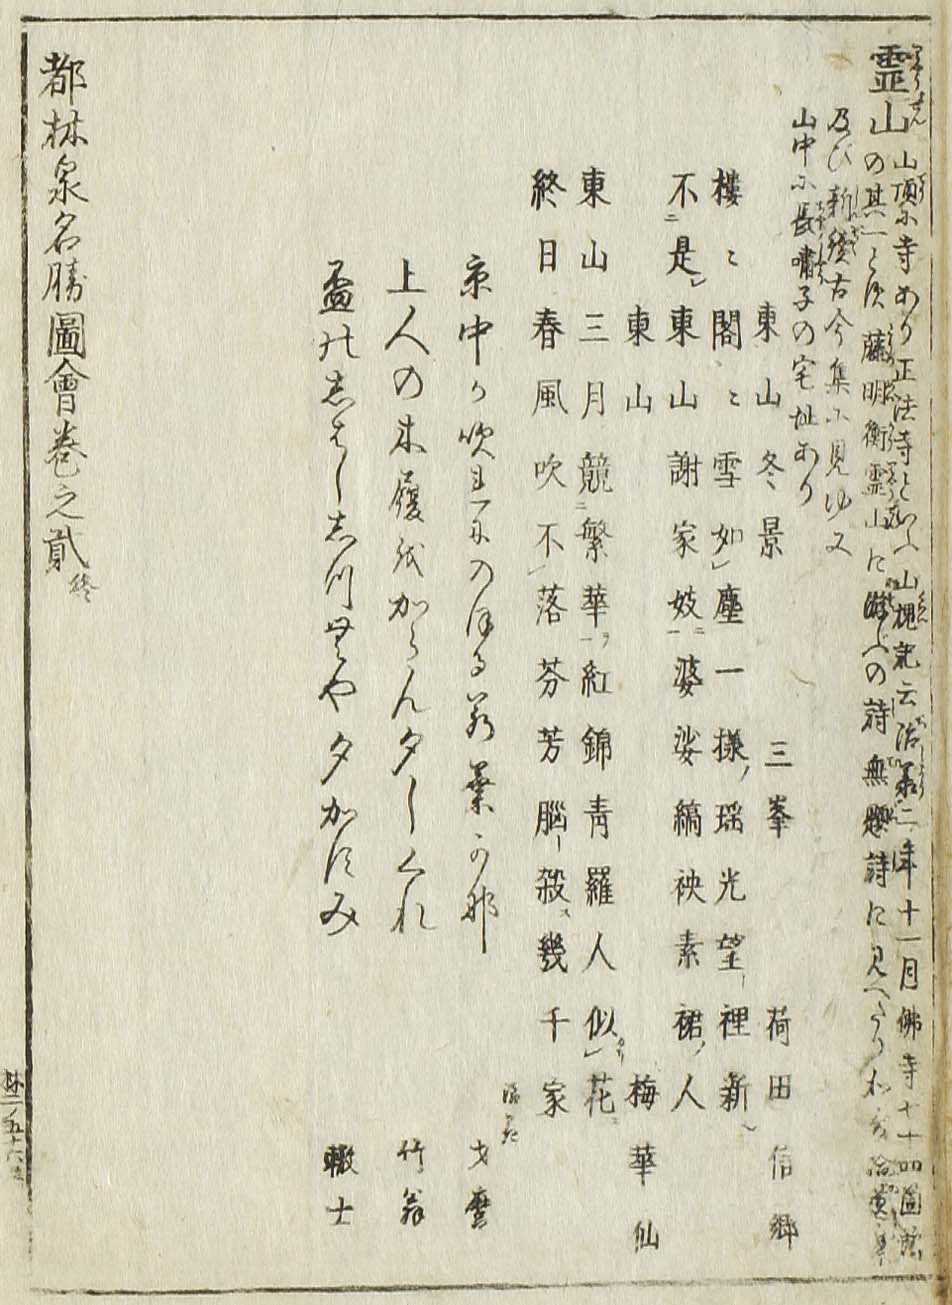 霊山 山頂に寺あり正法寺といふ山槐記云治承二年十一月佛寺
の其一とす藤明衡霊山に遊ぶの詩無題詩に見へたり
及び新續古今集に見ゆ又
山中に長嘯子の宅址あり
東山冬景 三峯 荷田信郷
樓〻閣〻雪如塵一様瑶光望裡新
不是東山謝家妓婆娑縞袂素裙人
東山 梅華仙
東山三月競繁華紅錦青羅人似花
終日春風吹不落芬芳腦殺幾千家
京中の吹れにのほる若葉かな
上人の木履をからん夕しくれ 竹翁
盃のしはしし川むや夕かすみ 轍士
都林泉名勝圖會巻之貳終